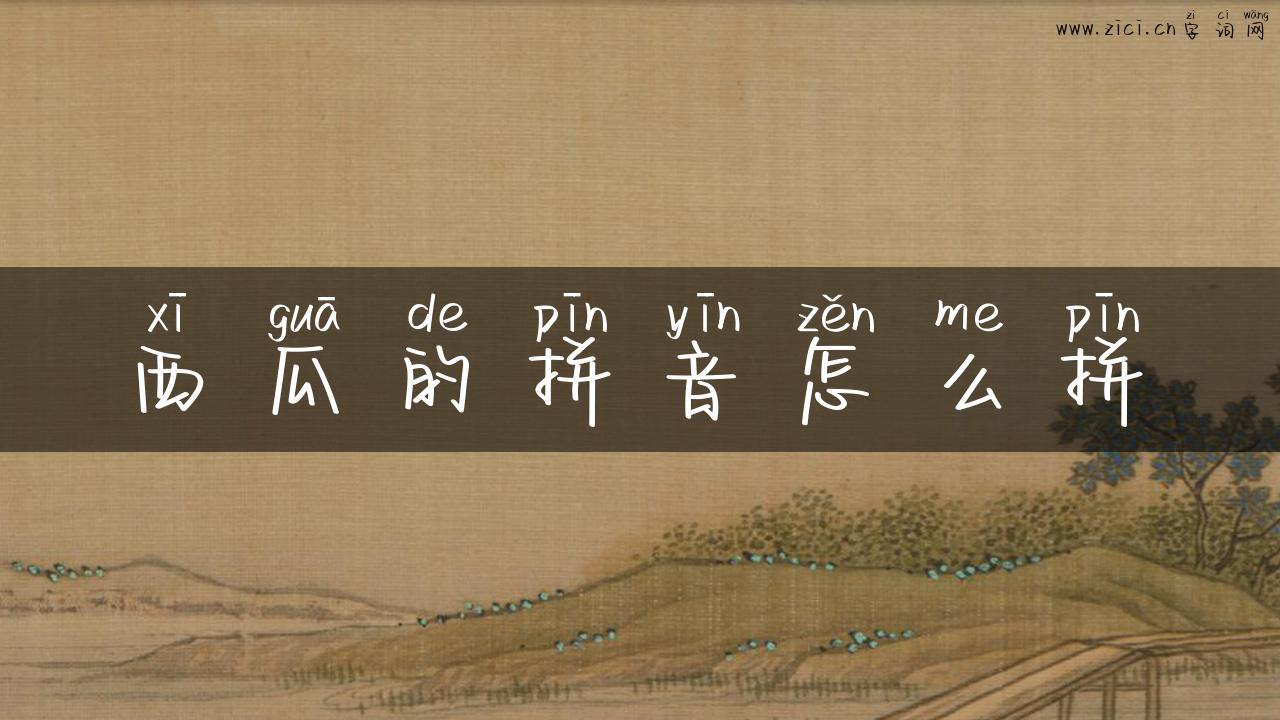 zì cí wǎng
www.zici.cn 字 词 网
xī guā de pīn yīn zěn me pīn
西 瓜 的 拼 音 怎 么 拼